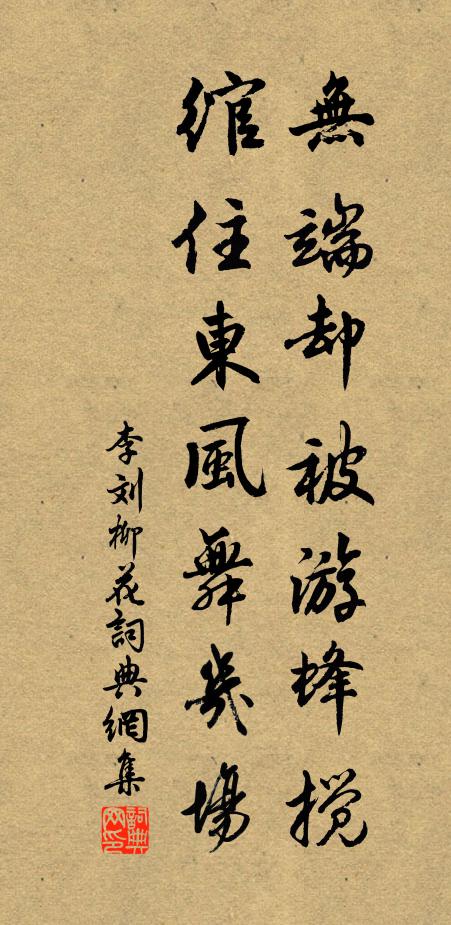 無端却被游蜂攪
綰住東風舞幾場
李刘柳花詞典網集
詞典网印